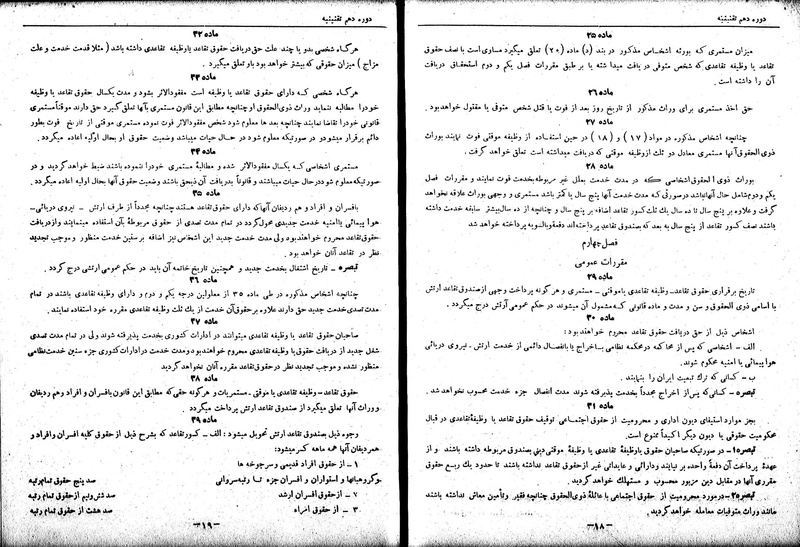 دوره دهم تقنینیه
ماده ۲۵
میزان مستمری که بورثه اشخاص مذکور در بند (د) ماده (۲۰) تعلق میگیرد مساوی است با نصف حقوق
تقاعد یا وظیفه تقاعدی که شخص متوفی دریافت میداشته یا بر طبق مقررات فصل یکم و دوم استحقاق دریافت
آن را داشته است .
ماده ۲۶
حق اخذ مستمری برای وراث مذکور از تاریخ روز بعد از فوت یا قتل شخص متوفی یا مفقود خواهد بود.
ماده ۲۷
چنانچه اشخاص مذکوره در مواد (۱۷) و (۱۸) در حین استفاده از وظیفه موقتی فوت نمایند بوراث
ذوی الحقوق آنها مستمری معادل دو ثلث از وظیفه موقتی که دریافت میداشته است تعلق خواهد گرفت .
ماده ۲۸
بوراث ذوی الحقوق اشخاصی که در مدت خدمت بعلل غیر مربوطه بخدمت فوت نمایند و مقررات فصل
یکم و دوم شامل حال آنها نباشد در صورتی که مدت خدمت آنها پنج سال یا کمتر باشد مستمری و وجهی بوراث علاقه نخواهد
گرفت و علاوه بر پنج سال تا ده سال یک ثلث کسور تقاعد اضافه بر پنج سال و چنانچه از ده سال بیشتر سابقه خدمت داشته
باشند نصف کسور تقاعد از پنج سال به بعد که بصندوق تقاعد پرداخته اند دفعة بالسویه پرداخته خواهد شد
فصل چهارم
مقررات عمومی
ماده ۲۹
تاریخ برقراری حقوق تقاعد ـ وظیفه تقاعدی یا موقتی ـ مستمری و هر گونه پرداخت وجهی از صندوق تقاعد ارتش
با اسامی ذوی الحقوق و سن و مدت و ماده قانونی که مشمول آن میشوند در حکم عمومی ارتش درج میگردد .
ماده ۳۰
اشخاص ذیل از حق دریافت حقوق تقاعد محروم خواهند بود :
الف ـ اشخاصی که پس از محاکمه در محکمه نظامی ـ باخراج یا بانفصال دائمی از خدمت ارتش ـ نیروی دریائی
هوا پیمائی یا امنیه محکوم شوند.
ب ـ کسانی که ترک تبعیت ایران را بنمایند .
تبصره ـ کسانی که پس از اخراج مجدداً بخدمت پذیرفته شوند مدت انفصال جزء خدمت محسوب نخواهد شد .
ماده ۳۱
بجز موارد استیفای دیون اداری و محرومیت از حقوق اجتماعی توقیف حقوق تقاعد یا وظیفهٔ تقاعدی در قبال
محکومیت حقوقی یا دیون دیگر اکیداً ممنوع است .
تبصره ۱ ـ در صورتیکه صاحبان حقوق یا وظیفهٔ تقاعدی یا وظیفهٔ موقتی دینی بصندوق مربوطه داشته باشند و از
عهدهٔ پرداخت آن دفعةً واحده بر نیایند و دارائی و عایداتی غیر از حقوق تقاعد نداشته باشند تا حدود یک ربع حقوق
مقرری آنها در مقابل دین مزبور محسوب و مستهلک خواهد گردید.
تبصره ۲ ـ در مورد محرومیت از حقوق اجتماعی با عائلهٔ ذوی الحقوق چنانچه فقیر و تأمین معاش نداشته باشند
مانند وراث متوفیات معامله خواهد گردید.
ـ۱۸ـ
دوره دهم تقنینیه
ماده ۳۲
هر گاه شخصی بدو یا چند علت حق دریافت حقوق تقاعد یا وظیفه تقاعدی داشته باشد ( مثلا قدمت خدمت و علت
مزاج ) میزان حقوقی که بیشتر خواهد بود باو تعلق میگیرد .
ماده ۳۳
هر گاه شخصی که دارای حقوق تقاعد یا وظیفه است مفقودالاثر بشود و مدت یکسال حقوق تقاعد یا وظیفه
خود را مطالبه ننماید وراث ذوی الحقوق او چنانچه مطابق این قانون مستمری بآنها تعلق گیرد حق دارند موقتاً مستمری
قانونی خود را تقاضا نمایند چنانچه بعد ها معلوم شود شخص مفقودالاثر فوت نموده مستمری موقتی از تاریخ فوت بطور
دائم برقرار میشود و در صورتیکه معلوم شود در حال حیات میباشد وضعیت حقوق او بحال اولیه اعاده میگردد .
ماده ۳۴
مستمری اشخاصی که یکسال مفقودالاثر شده و مطالبهٔ مستمری خود را ننموده باشند ضبط خواهد گردید و در
صورتیکه معلوم شود در حال حیات میباشند و قانوناً بدریافت آن ذیحق باشند وضعیت حقوق آنها بحال اولیه اعاده میگردد .
ماده ۳۵
بافسران و افراد و هم ردیفان آنها که دارای حقوق تقاعد هستند چنانچه مجدداً از طرف ارتش ـ نیروی دریائی ـ
هوا پیمائی یا امنیه خدمت جدیدی محول گردد در تمام مدت تصدی از حقوق مربوطهٔ بآن استفاده مینمایند و از دریافت
حقوق تقاعد محروم خواهند بود ولی مدت خدمت جدید این اشخاص نیز اضافه بر سنین خدمت منظور و موجب تجدید
نظر در تقاعد آنان خواهد بود .
تبصره ـ تاریخ اشتغال بخدمت جدید و همچنین تاریخ خاتمه آن باید در حکم عمومی ارتشی درج گردد .
ماده ۳۶
چنانچه اشخاص مذکوره در طی ماده ۳۵ از معلولین درجه یکم و دوم و دارای وظیفه تقاعدی باشند در تمام
مدت تصدی خدمت جدید حق دارند علاوه بر حقوق آن خدمت از یک ثلث وظیفه تقاعدی مقرره خود استفاده نمایند .
ماده ۳۷
صاحبان حقوق تقاعد یا وظیفه تقاعدی میتوانند در ادارات کشوری بخدمت پذیرفته شوند ولی در تمام مدت تصدی
شغل جدید از دریافت حقوق یا وظیفه تقاعدی محروم خواهند بود و مدت خدمت در ادارات کشوری جزء سنین خدمت نظامی
منظور نشده و موجب تجدید نظر در حقوق تقاعد مقرره آنان نخواهد گردید
ماده ۳۸
حقوق تقاعد ـ وظیفه تقاعدی یا موقتی ـ مستمریات و هر گونه حقی که مطابق این قانون بافسران و افراد و هم ردیفان
و وراث آنها تعلق میگیرد از صندوق تقاعد ارتش پرداخت میگردد .
ماده ۳۹
وجوه ذیل بصندوق تقاعد ارتش تحویل میشود : الف ـ کسور تقاعد که بشرح ذیل از حقوق کلیه افسران و افراد و
همردیفان آنها همه ماهه کسر میشود :
۱ ـ از حقوق افراد قدیمی و سرجوخه ها
و گروهبانها و استواران و افسران جزء تا رتبه سروانی صد پنج حقوق تمام رتبه
۲ ـ از حقوق افسران ارشد صد شش و نیم از حقوق تمام رتبه
۳ ـ از حقوق امراء صد هشت از حقوق تمام رتبه
ـ۱۹ـ